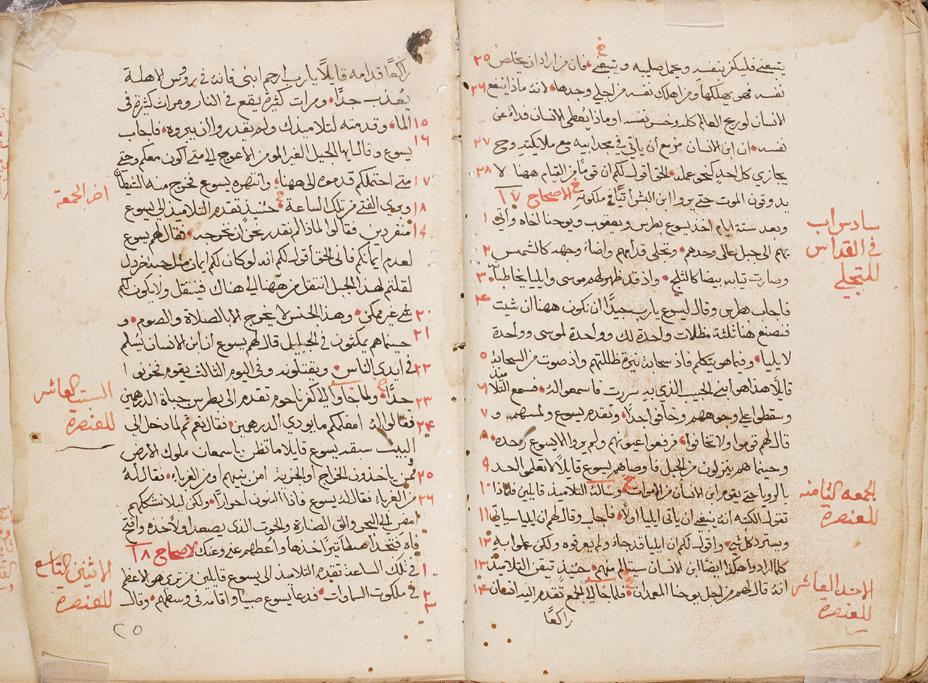 يتبعني فليكفر بنفسه ويحمل صليبه ويتبعني فان من اراد ان يخلص ٢٥
نفسه فهو يهلكها ومن اهلك نفسه من اجلي وجدها لانه ماذا ينفع ٢٦
الانسان لو ربح العالم كله وخسر نفسه او ماذا يعطي الانسان فداء عن
نفسه ان ابن الانسان مزمع ان ياتي في مجد ابيه مع ملايكته وح ٢٧
يجازي كل احد كنحو عمله الحق اقول لكم ان قوما من القيام ههنا لا ٢٨
يدوقون الموت حتى يروا ابن البشر اتيا في ملكوته الاصحاح ١٧
وبعد ستة ايام اخد يسوع بطرس ويعقوب ويوحنا اخاه واتي ١
بهم الى جبل عالي وحدهم وتجلى قدامهم واضاء وجهه كالشمس ٢
وصارت تيابه بيضا كالثلج واد قد ظهر لهم موسى وايليا يخاطباه ٣
فاجاب بطرس وقال ليسوع يارب جيدا ان نكون ههنا ان شيت ٤
فنصنع هنا ثلثة مظلات واحدة لك وواحدة لموسى وواحدة
لايليا وفيما هو يتكلم فاذ سحابة نيرة ظللتهم واذ صوت من السحابة ٥
قايلا هدا هو ابني الحبيب الذي به سررت فاسمعوا له فسمع التلاميد ٦
وسقطوا على وجوههم وخافوا جدا وتقدم يسوع ولمسهم و ٧
قال لهم قوموا ولا تخافوا فرفعوا عيونهم ولم يروا الا يسوع وحده ٨
وحينما هم ينزلون من الجبل فاوصاهم يسوع قايلا لا تعلموا احد ٩
بالرويا حتى يقوم ابن الانسان من الاموات وساله التلاميذ قايلين فلماذا ١٠
تقول الكتبة انه ينبغي ان ياتي ايليا اولا فاجاب وقال لهم ان ايليا سياتي ١١
ويسترد كل شي واقول لكم ان ايليا قد جاء ولم يعرفوه ولكن عملوا به ١٢
كلما ارادوا هكذا ايضا ابن الانسان سيتالم منهم حنيذ تيقن التلاميد ١٣
انه قال لهم من اجل يوحنا المعمدان فلما جا الى الجمع تقدم اليه انسان ١٤
راكعا
سادس اب
في القداس
للتجلي
الجمعه الثامنه
للعنصرة
الاحد العاشر
للعنصرة
راكعا قدامه قايلا يارب ارحم ابني فانه في روس الاهلة
يعذب جدا ومرات كثيرة يقع في النار ومرات كثيرة في
الما وقدمته لتلاميدك ولم يقدروا ان يبروه فاجاب ١٥ ١٦
يسوع وقال ايها الجيل الغير المومن الاعوج الى متى اكون معكم وحتى
متى احتملكم قدموه الى ههنا وانتهره يسوع فخرج منه الشيطان ١٧
وبري الفتى من تلك الساعة حنيذ تقدم التلاميذ الى يسوع ١٨
منفردين فقالوا لماذا لم نقدر نحن ان نخرجه فقال لهم يسوع ١٩
لعدم ايمانكم فاني الحق اقول لكم انه لو كان لكم ايمان مثل حبة خردل
لقلتم لهدا الجبل انتقل من ههنا الى هناك فينتقل ولا يكون لكم
شي غير ممكن وهذا الجنس لا يخرج الا بالصلاة والصوم و ٢٠
حينما هم يمكثون في الجليل قال لهم يسوع ان ابن الانسان يسلم ٢١
في ايدي الناس ويقتلونه وفي اليوم الثالث يقوم فحزنوا ٢٢
جدا ولما جاوا الى كفرناحوم تقدم الى بطرس جباة الدرهمين ٢٣
فقالوا له امعلمكم ما يودي الدرهمين فقال نعم ثم لما دخل الى ٢٤
البيت سبقه يسوع قايلا ما تظن يا سمعان ملوك الارض
ممن ياخدون الخراج او الجزية امن بنيهم ام من الغرباء فقال له ٢٥
من الغرباء فقال له يسوع فاذا البنون احرارا ولكن ليلا نشككهم ٢٦
امض الى البحر والق الصنارة والحوت الذي يصعد اولا خده وافتح
فاه فتجد اسطاتيرا خدها واعطهم عني وعنك الاصحاح ١٨
في تلك الساعة تقدم التلاميذ الى يسوع قايلين من ترى هو الاعظم ١
في ملكوت السماوات فدعا يسوع صبيا واقامه في وسطهم وقال ٢ ٣
اخر الجمعة
السبت العاشر
للعنصرة
الاثنين التاسع
للعنصرة
٢٥